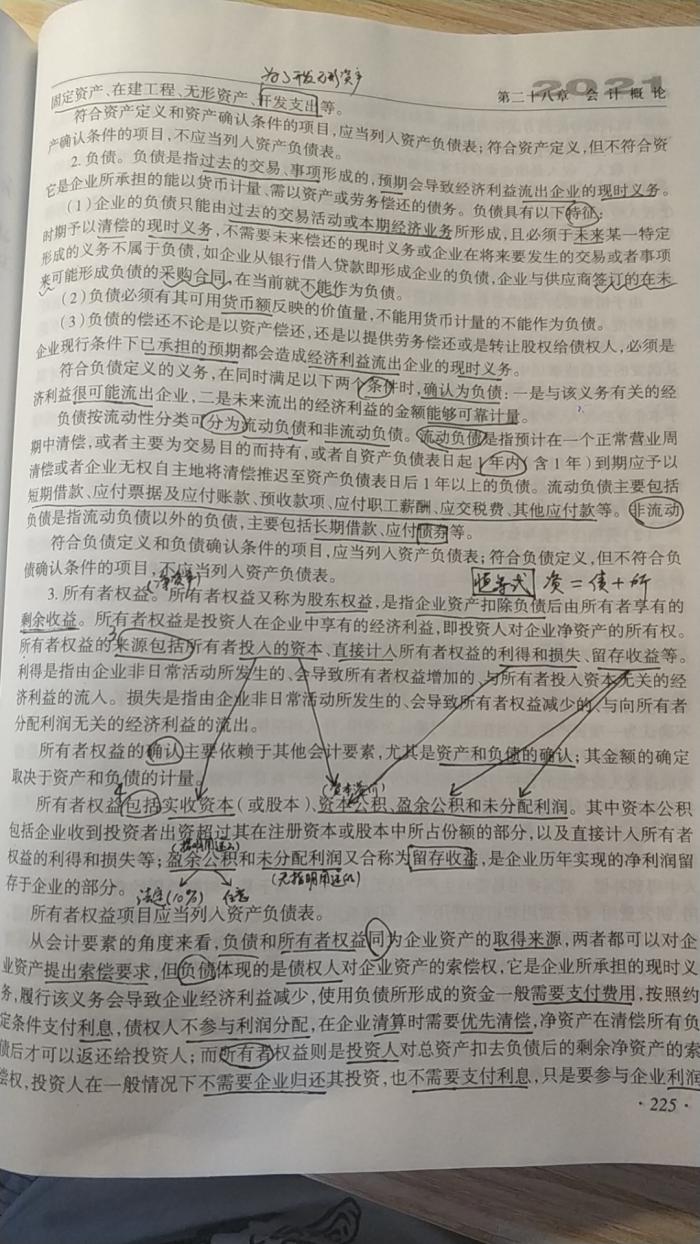 为了开发无形资产
2021
第二十八章 会计概论
固定资产、在建工程、无形资产、开发支出等。
符合资产定义和资产确认条件的项目,应当列入资产负债表;符合资产定义,但不符合资
产确认条件的项目,不应当列入资产负债表。
2. 负债。负债是指过去的交易、事项形成的,预期会导致经济利益流出企业的现时义务。
它是企业所承担的能以货币计量、需以资产或劳务偿还的债务。负债具有以下特征:
(1)企业的负债只能由过去的交易活动或本期经济业务所形成,且必须于未来某一特定
时期予以清偿的现时义务,不需要未来偿还的现时义务或企业在将来要发生的交易或者事项
形成的义务不属于负债,如企业从银行借入贷款即形成企业的负债,企业与供应商签订的在未
来可能形成负债的采购合同,在当前就不能作为负债。
(2)负债必须有其可用货币额反映的价值量,不能用货币计量的不能作为负债。
(3)负债的偿还不论是以资产偿还,还是以提供劳务偿还或是转让股权给债权人,必须是
企业现行条件下已承担的预期都会造成经济利益流出企业的现时义务。
符合负债定义的义务,在同时满足以下两个条件时,确认为负债:一是与该义务有关的经
济利益很可能流出企业,二是未来流出的经济利益的金额能够可靠计量。
负债按流动性分类可分为流动负债和非流动负债。流动负债是指预计在一个正常营业周
期中清偿,或者主要为交易目的而持有,或者自资产负债表日起1年内(含1年)到期应予以
清偿或者企业无权自主地将清偿推迟至资产负债表日后1年以上的负债。流动负债主要包括
短期借款、应付票据及应付账款、预收款项、应付职工薪酬、应交税费、其他应付款等。非流动
负债是指流动负债以外的负债,主要包括长期借款、应付债券等。
符合负债定义和负债确认条件的项目,应当列入资产负债表;符合负债定义,但不符合负
债确认条件的项目,不应当列入资产负债表。
(净资产)
恒等式 资=债+所
3. 所有者权益。所有者权益又称为股东权益,是指企业资产扣除负债后由所有者享有的
剩余收益。所有者权益是投资人在企业中享有的经济利益,即投资人对企业净资产的所有权。
3
所有者权益的来源包括所有者投入的资本、直接计入所有者权益的利得和损失、留存收益等。
利得是指由企业非日常活动所发生的、会导致所有者权益增加的、与所有者投入资本无关的经
济利益的流入。损失是指由企业非日常活动所发生的、会导致所有者权益减少的、与向所有者
分配利润无关的经济利益的流出。
所有者权益的确认主要依赖于其他会计要素,尤其是资产和负债的确认;其金额的确定
取决于资产和负债的计量。
4
(资本溢价)
所有者权益包括实收资本(或股本)、资本公积、盈余公积和未分配利润。其中资本公积
包括企业收到投资者出资超过其在注册资本或股本中所占份额的部分,以及直接计入所有者
(指明用途的)
权益的利得和损失等;盈余公积和未分配利润又合称为留存收益,是企业历年实现的净利润留
(无指明用途的)
存于企业的部分。
法定(10%) 任意
所有者权益项目应当列入资产负债表。
从会计要素的角度来看,负债和所有者权益同为企业资产的取得来源,两者都可以对企
业资产提出索偿要求,但负债体现的是债权人对企业资产的索偿权,它是企业所承担的现时义
务,履行该义务会导致企业经济利益减少,使用负债所形成的资金一般需要支付费用,按照约
定条件支付利息,债权人不参与利润分配,在企业清算时需要优先清偿,净资产在清偿所有负
债后才可以返还给投资人;而所有者权益则是投资人对总资产扣去负债后的剩余净资产的索
偿权,投资人在一般情况下不需要企业归还其投资,也不需要支付利息,只是要参与企业利润
·225·